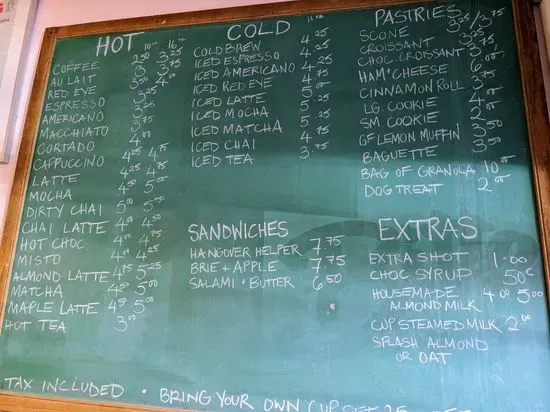 HOT
10oz 16oz
COFFEE 2.50 3.25
AU LAIT 3 3.75
RED EYE 3.50 4.00
ESPRESSO 3.25
AMERICANO 3.75
MACCHIATO 3
CORTADO 4.00
CAPPUCCINO 4.25 4.75
LATTE 4.25 4.75
MOCHA 4.50 5.00
DIRTY CHAI 5.00 5.50
CHAI LATTE 4.00 4.50
HOT CHOC. 4.00 4.75
MISTO 4.00 4.25
ALMOND LATTE 4.75 5.25
MATCHA 4.50 5.00
MAPLE LATTE 4.50 5.00
HOT TEA 3.00
COLD
16oz
COLD BREW 4.25
ICED ESPRESSO 4.25
ICED AMERICANO 4.25
ICED RED EYE 4.75
ICED LATTE 5.00
ICED MOCHA 5.25
ICED MATCHA 5.25
ICED CHAI 4.75
ICED TEA 3.75
SANDWICHES
HANGOVER HELPER 7.75
BRIE + APPLE 7.75
SALAMI + BUTTER 6.50
PASTRIES
SCONE 3.25/3.75
CROISSANT
CHOC. CROISSANT 3.75
HAM + CHEESE 6.00
CINNAMON ROLL 3.75
LG. COOKIE 4.00
SM COOKIE 2.00
GF LEMON MUFFIN 3.50
BAGUETTE 3.50
BAG OF GRANOLA 10.00
DOG TREAT 2.00
EXTRAS
EXTRA SHOT 1.00
CHOC SYRUP 50¢
HOUSEMADE 4.00 5.00
ALMOND MILK
CUP STEAMED MILK 2.00
SPLASH ALMOND
OR OAT
TAX INCLUDED • BRING YOUR OWN CUP